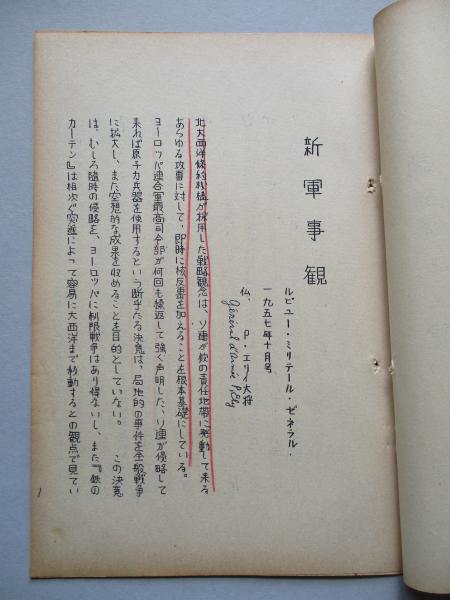 新軍事観
ルビュー・ミリテール・ゼネラル・
一九五七年十月号
仏、P・エリイ大将
Général d'armée P. Ely
北大西洋條約機構が採用した戦略観念は、ソ連が欧の責任地帯に発動して来る
あらゆる攻撃に対して、即時に核反撃を加えることを根本基礎にしている。
ヨーロッパ連合軍最高司令部が何回も繰返して強く声明した、ソ連が侵略して
来れば原子力兵器を使用するという断乎たる決意は、局地的の事件を全般戦争
に拡大し、また空想的な成果を収めることを目的としていない。この決意
は、むしろ臨時の侵略を、ヨーロッパに制限戦争はあり得ないし、また『鉄の
カーテン』は相次ぐ突進によって容易に大西洋まで移動するとの観点で見てい
1